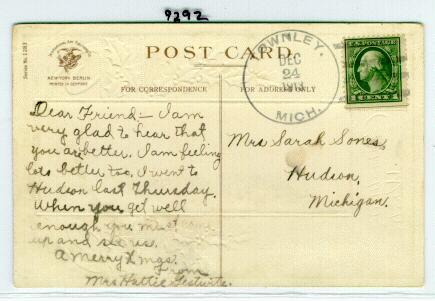 9292
Series No. 1283
NEW YORK BERLIN
PRINTED IN GERMANY
POST CARD
FOR CORRESPONDENCE
FOR ADDRESS
OWNLEY.
DEC
24
MICH.
U.S. POSTAGE
1 CENT 1
Dear Friend:- I am
very glad to hear that
you are better. I am feeling
lots better too. I went to
Hudson last Thursday.
When you get well
enough you must come
up and see us.
A merry Xmas.
From
Mrs Hattie
Mrs Sarah Sones,
Hudson,
Michigan.